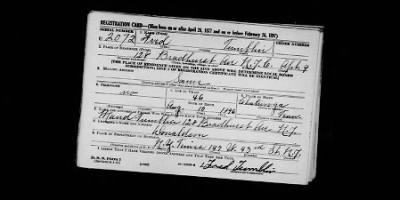 REGISTRATION CARD—(Men born on or after April 28, 1877 and on or before February 16, 1897)
SERIAL NUMBER 1. NAME (Print) ORDER NUMBER
U 2072 Fred Tumblin
2. PLACE OF RESIDENCE (Print)
128 Bradhurst Ave N.Y.C. Apt 9
[THE PLACE OF RESIDENCE GIVEN ON THE LINE ABOVE WILL DETERMINE LOCAL BOARD
JURISDICTION; LINE 2 OF REGISTRATION CERTIFICATE WILL BE IDENTICAL]
3. MAILING ADDRESS
Same
4. TELEPHONE 5. AGE IN YEARS 6. PLACE OF BIRTH
no 46
DATE OF BIRTH
Aug 10 1896 Tenn
128 Bradhurst Ave N.Y.
8. EMPLOYER'S NAME AND ADDRESS
Donaldson
9. PLACE OF EMPLOYMENT OR BUSINESS
N.Y. Times 147 W. 43rd St. N.Y.
I AFFIRM THAT I HAVE VERIFIED ABOVE ANSWERS AND THAT THEY ARE TRUE.
D. S. S. Form 1 Fred Tumblin